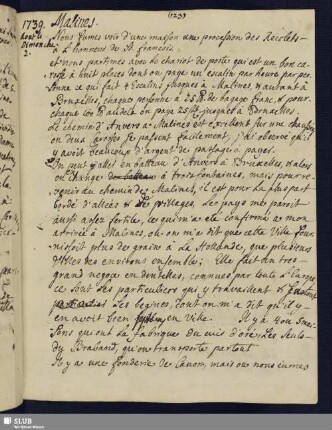 (123)
1739. Malines.
Aout le Nous fumes voir d'une maison une procession des Recolets
Dimanche à l'honneur de St. francois.
2. et nous partimes avec le chariot de poste qui est un bon ca-
rosse à huit places dont on paye un escalin par heure par per-
sonne ce qui fait 4 Escalins jusques à Malines, & autant à
Bruxelles, chaque personne à 25 lb. de bagage franc, & pour
chaque 100 au delà on paye jusques à Bruxelles.
Le chemin d'Anvers à Malines est excellent sur une chaussée
ou deux carosses se passent facilement, j'ai observé qu'il
y avoit beaucoup d'argent de passage à payer.
On peut aller en batteau d'Anvers à Bruxelles, & alors
on change de batteau à trois fontaines, mais pour re-
venir au chemin de Malines, il est pour la plus part
bordé d'allées & de villages. Le pays me paroit
aussi assez fertile, ce qu'on m'a confirmé à mon
arrivée à Malines, où on m'a dit que cette Ville four-
nissoit plus de grains à la Hollande, que plusieurs
Villes des environs ensemble; Elle fait un tres
grand negoce en dentelles, connues par toute l'Europe
ce sont des particuliers qui y travaillent &
les beguines, dont on m'a dit qu'il y
en avoit bien en ville. Il y a 400
qui ont la fabrique du cuir doré, les seules
du Braband, qu'on transporte partout
Il y a une fonderie de Canon, mais où nous eumes
SLUB